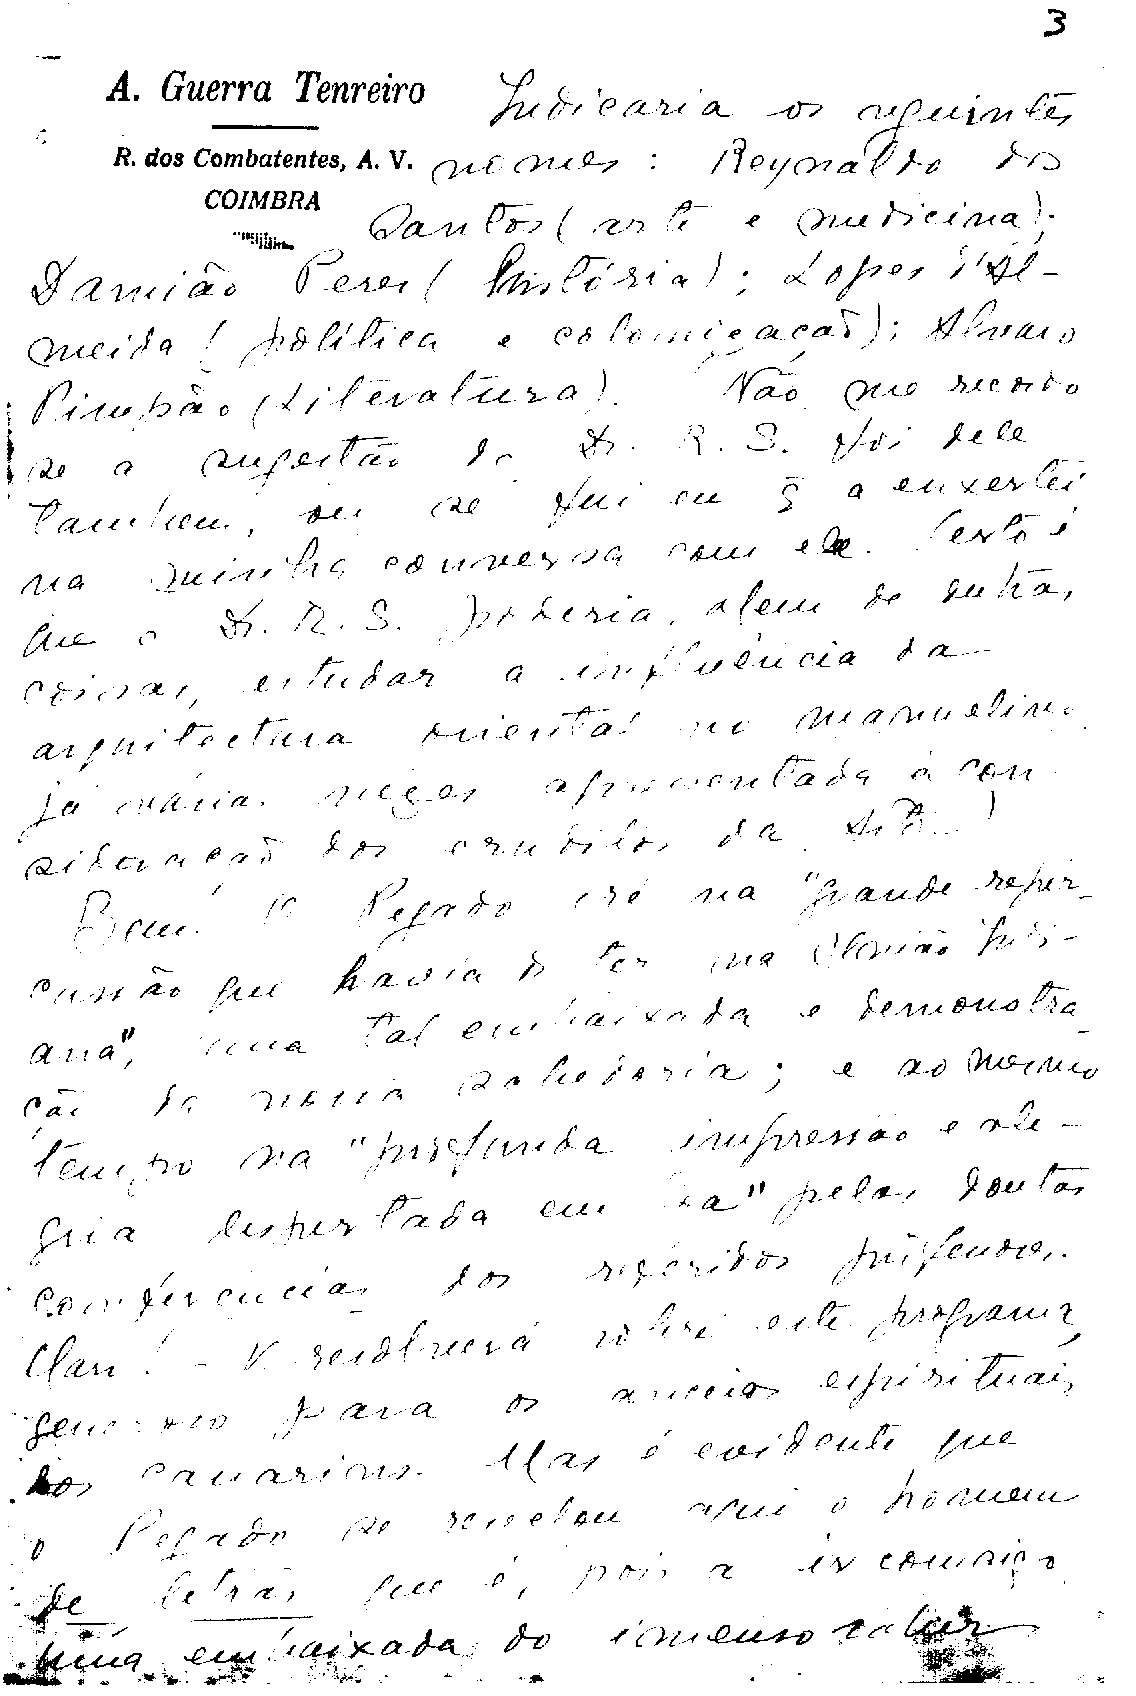 3
A. Guerra Tenreiro
R. dos Combatentes, A. V.
COIMBRA
Indicaria os seguintes
nomes: Reynaldo dos
Santos (arte e medicina);
Damião Peres (história); Lopes d'Al-
meida (política e colonização); Alvaro
Pimpão (Literatura). Não me recordo
se a sugestão do Dr. R. S. foi dele
tambem, ou se fui eu q̃ a enxertei
na minha conversa com ele. Certo é
que o Dr. R. S. poderia, alem de outras
coisas, estudar a influência da
arquitectura oriental no manuelino
já várias vezes apresentada à con-
sideração dos eruditos da
Bem! O Pegado crê na "grande reper-
cussão que havia de ter na União Indi-
ana", uma tal embaixada e demonstra-
ção da nossa sabedoria; e ao mesmo
tempo na "profunda impressão e ale-
gria despertada em Goa" pelas doutas
conferências dos referidos professores.
Claro! - V. resolverá sobre este programa,
generoso para os anceios espirituais
dos canarins. Mas é evidente que
o Pegado se revelou aqui o homem
de letras que é, pois a ir comsigo
uma embaixada do imenso saber